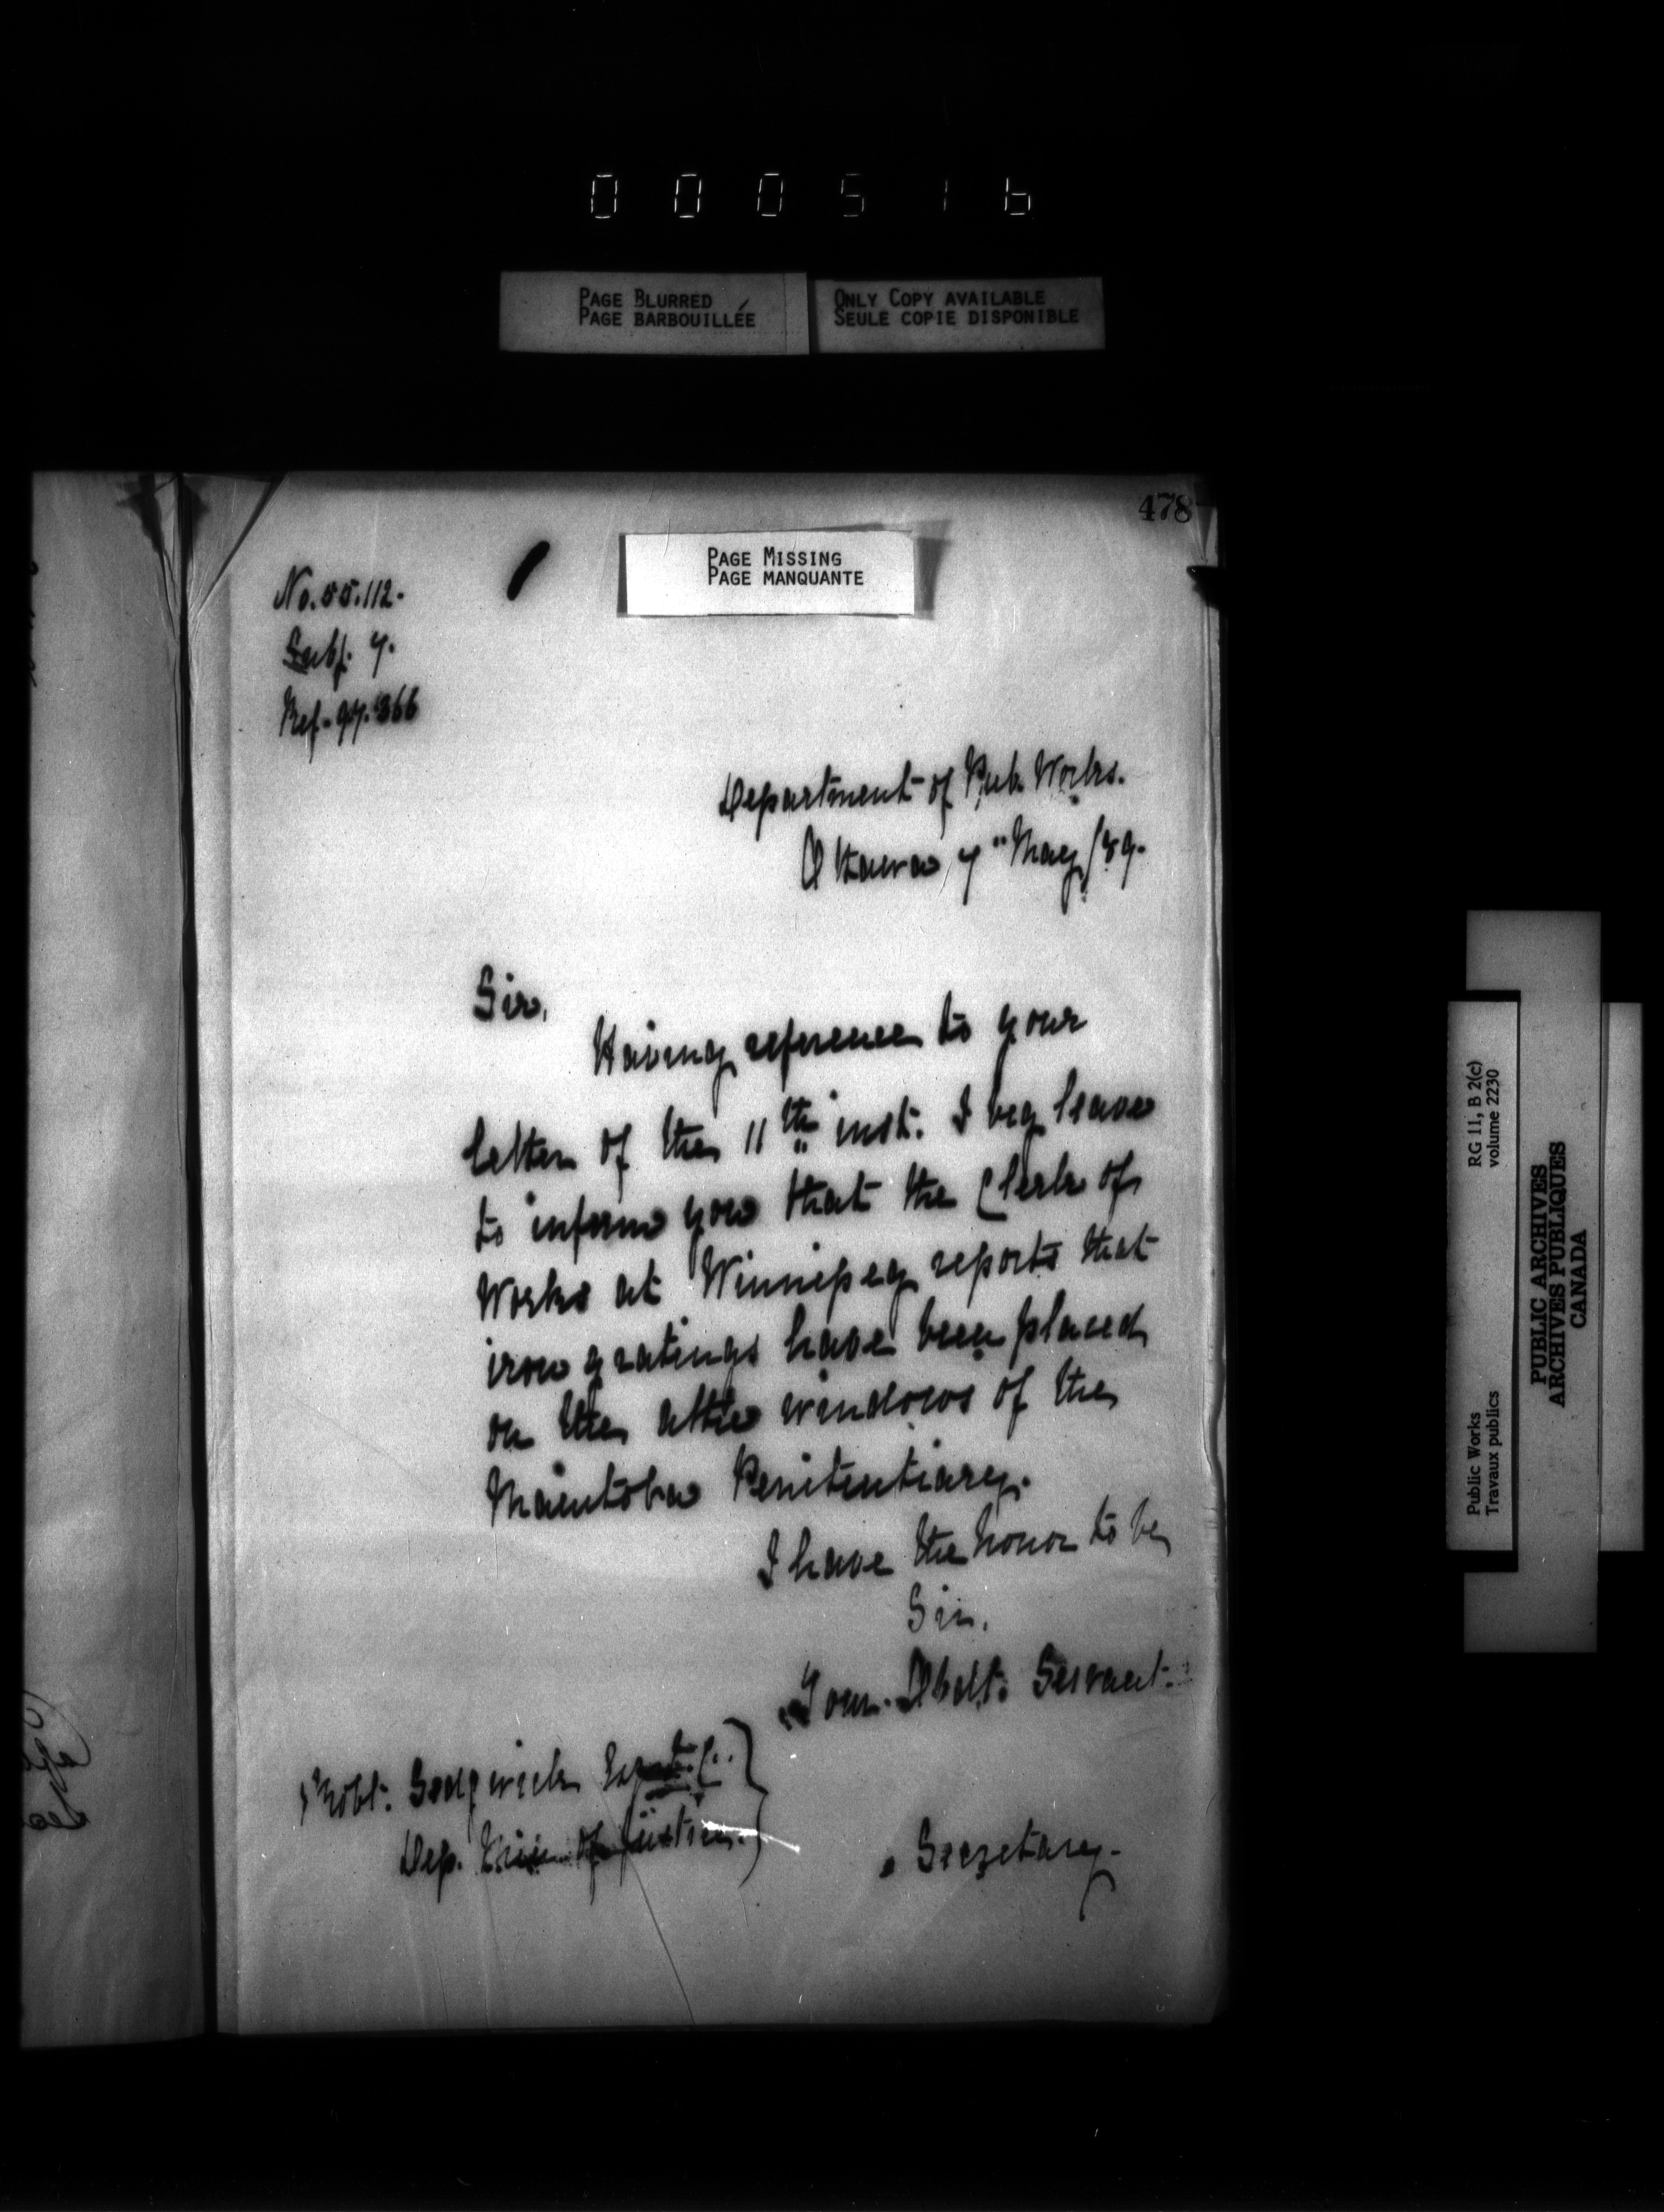 000516
PAGE BLURRED
PAGE BARBOUILLÉE
ONLY COPY AVAILABLE
SEULE COPIE DISPONIBLE
478
PAGE MISSING
PAGE MANQUANTE
No. 55.112.
Subj. 7.
Ref. 97.366
Department of Pub. Works.
Ottawa 7" May /89.
Sir,
Having reference to your
letter of the 11th inst. I beg leave
to inform you that the Clerk of
Works at Winnipeg reports that
iron gratings have been placed
on the attic windows of the
Manitoba Penitentiary.
I have the honor to be
Sir,
Your Obdt. Servant.
Robt. Sedgwick Esq.
Dep. Min. of Justice.
Secretary.
Public Works
Travaux publics
RG 11, B 2(c)
volume 2230
PUBLIC ARCHIVES
ARCHIVES PUBLIQUES
CANADA